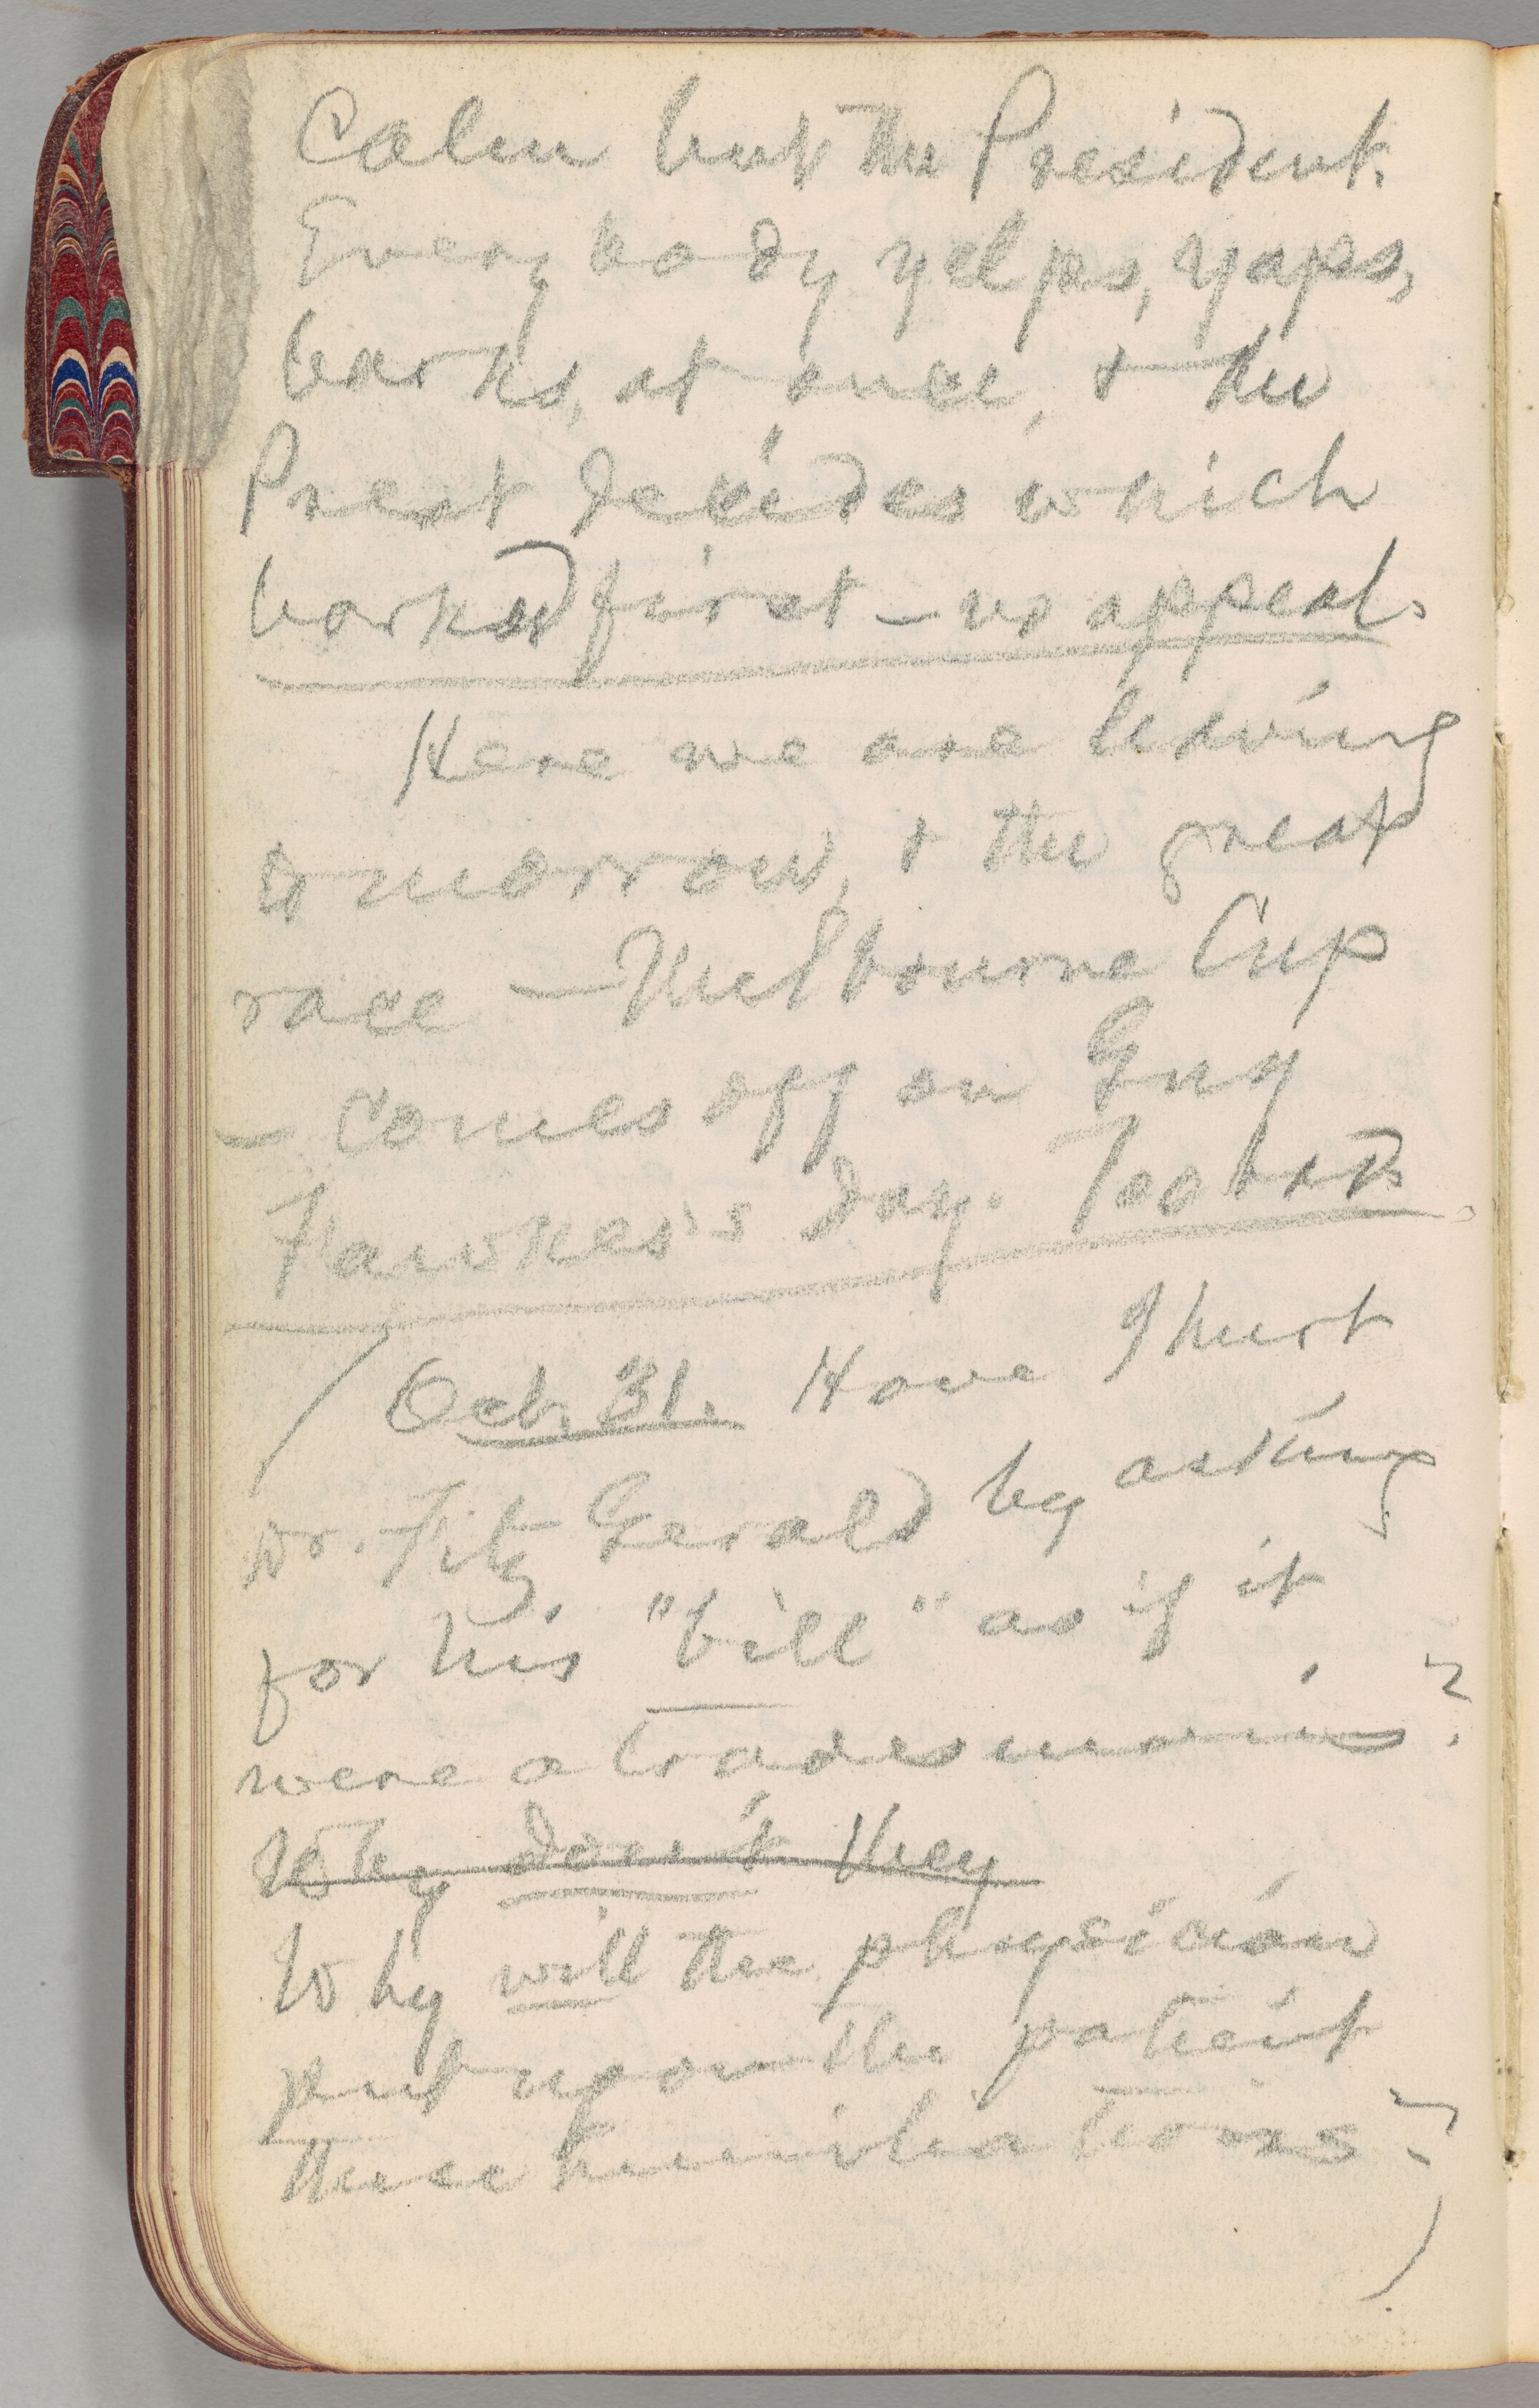 Calm but the President.
Everybody yelps, yaps,
barks, at once, & the
Prest decides which
barked first – no appeal.
Here we are leaving
tomorrow, & the great
race — Melbourne Cup
— comes off on Guy
Fawkes's day. Too bad.
Oct. 31. Have I hurt
Dr. Fitz Gerald by asking
for his "bill" as if it
were a tradesman's?
Why don't they
Why will the physician
put upon the patient
these humiliations?)